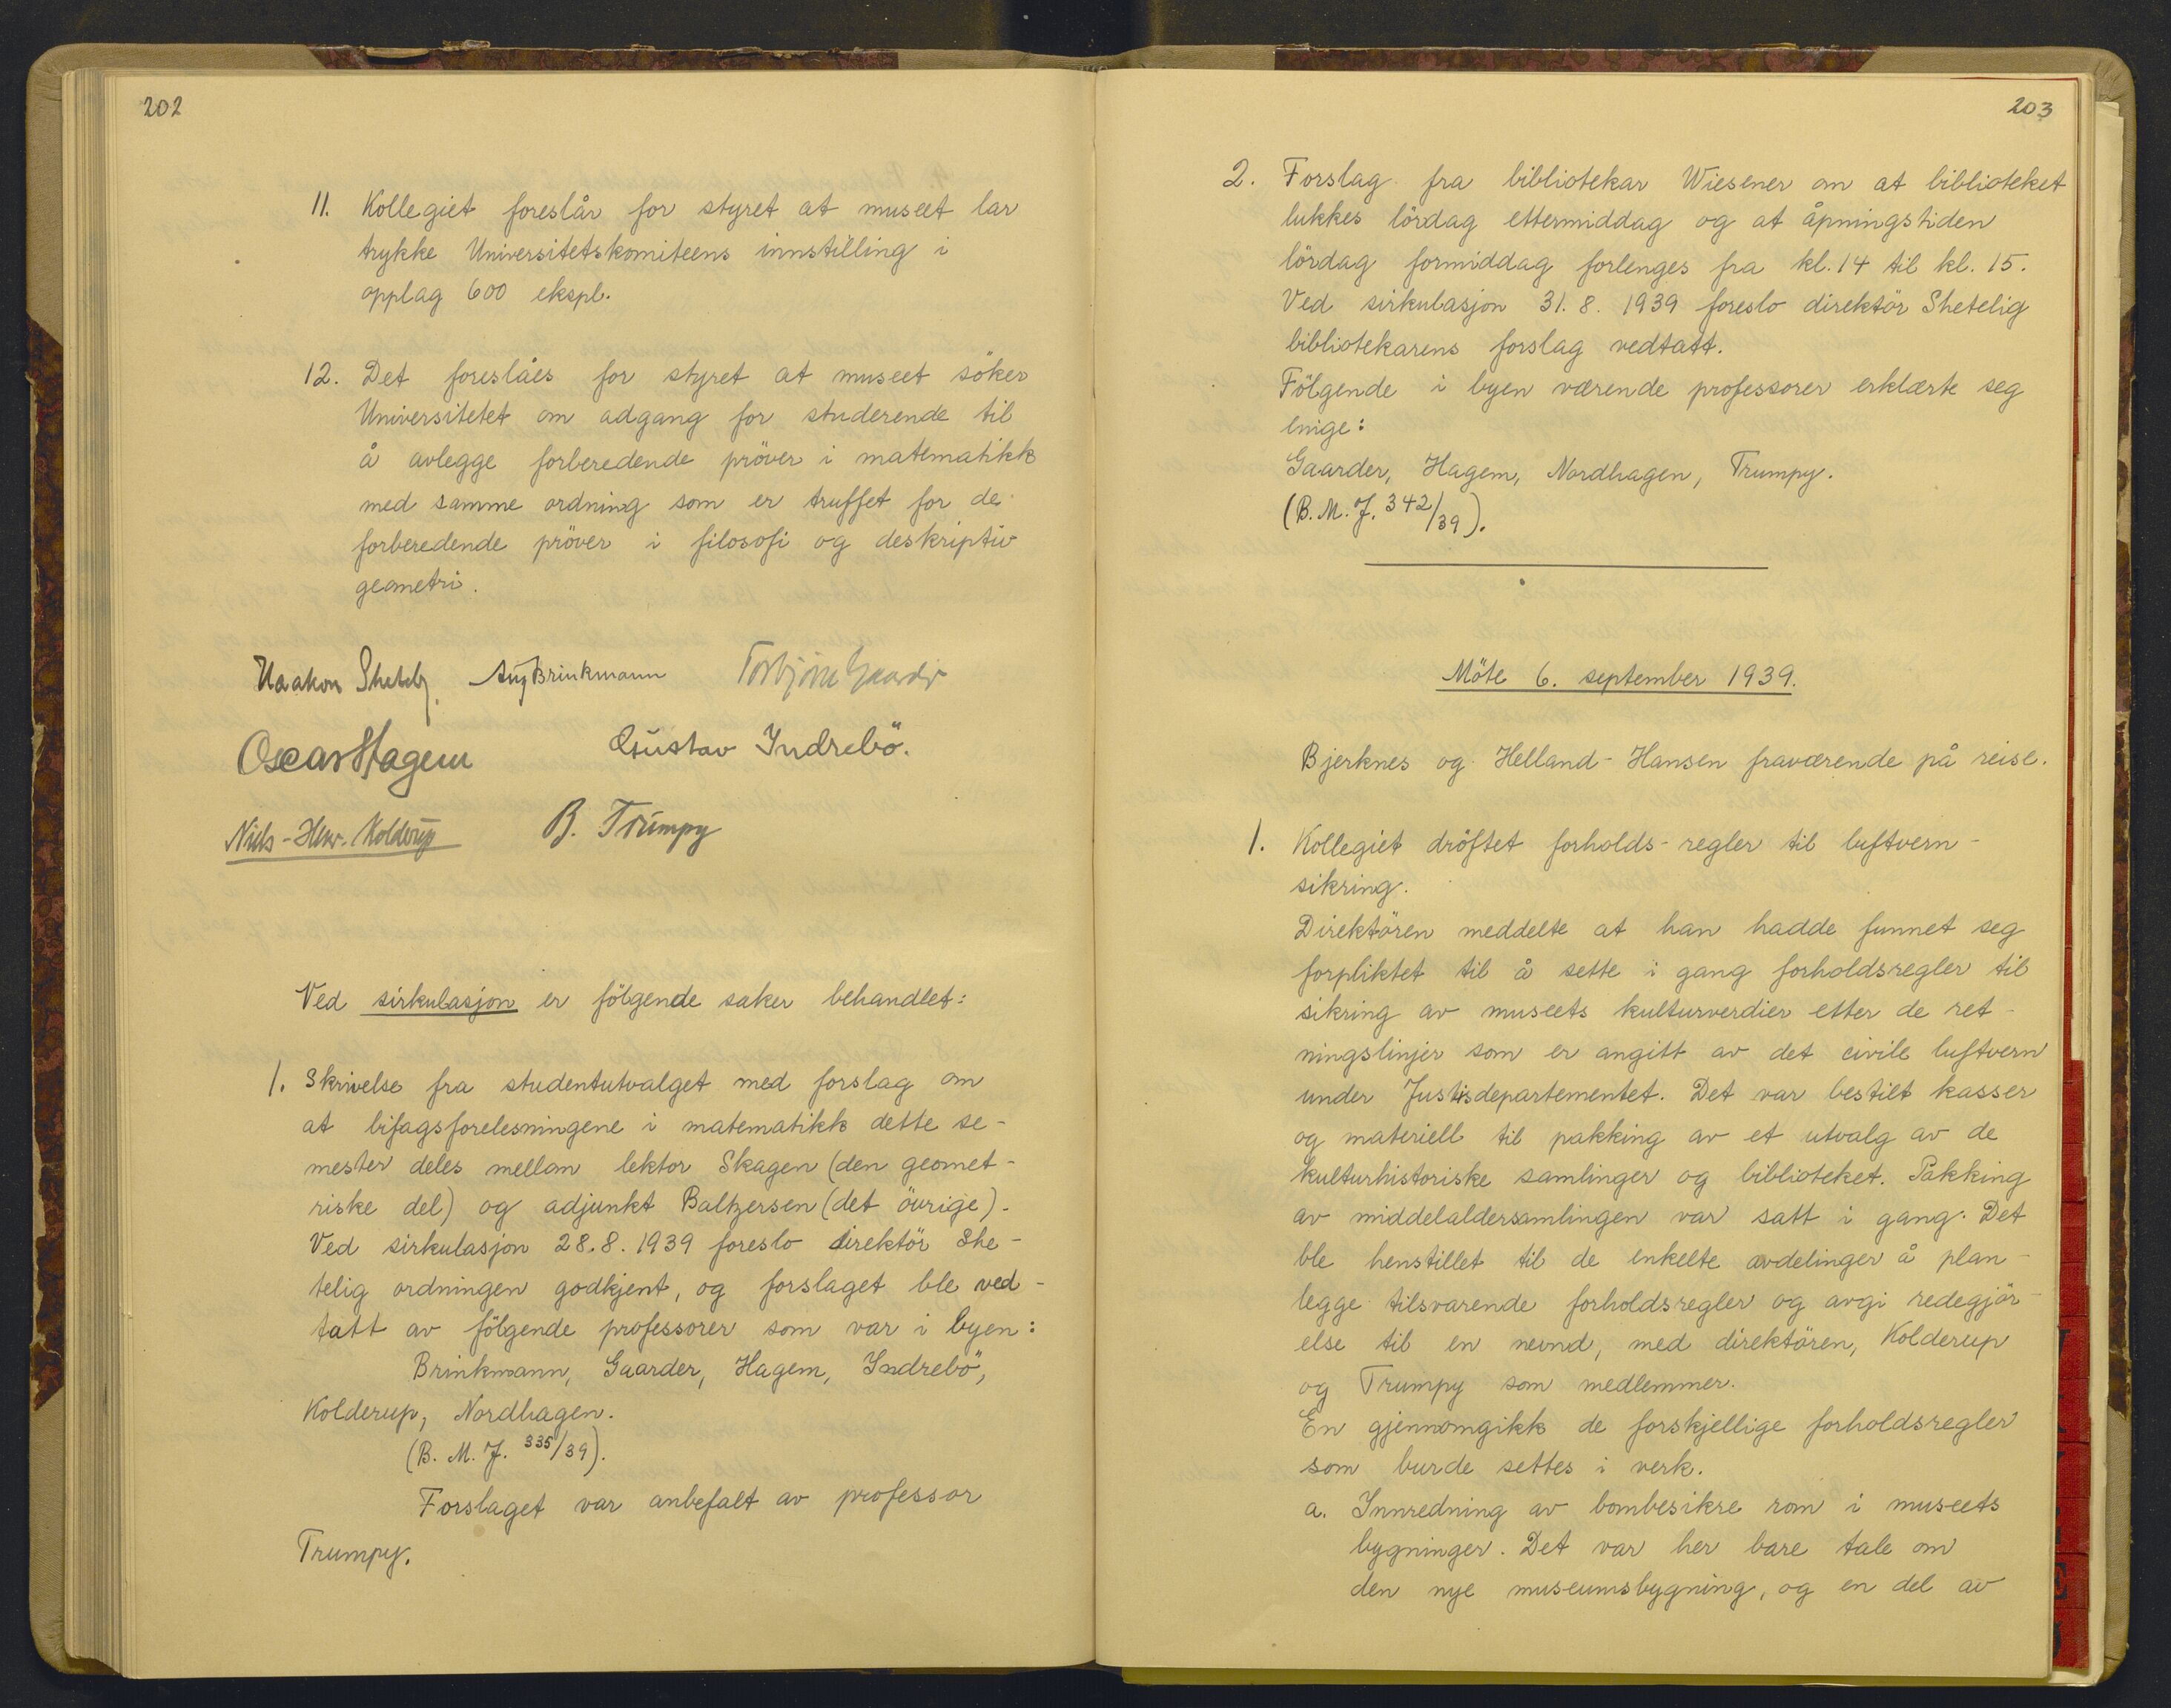 202
11. Kollegiet foreslår for styret at museet lar
trykke Universitetskomiteens innstilling i
opplag 600 ekspl.
12. Det foreslåes for styret at museet söker
Universitetet om adgang for studerende til
å avlegge forberedende pröver i matematikk
med samme ordning som er truffet for de
forberedende pröver i filosofi og deskriptiv
geometri.
Haakon Shetelig. Aug Brinkmann Torbjörn Gaarder
Oscar Hagem Gustav Indrebö.
Niels-Henr. Kolderup B. Trumpy
Ved sirkulasjon er fölgende saker behandlet:
1. Skrivelse fra studentutvalget med forslag om
at bifagsforelesningene i matematikk dette se-
mester deles mellom lektor Skagen (den geomet-
riske del) og adjunkt Baltzersen (det övrige).
Ved sirkulasjon 28.8.1939 foreslo direktör She-
telig ordningen godkjent, og forslaget ble ved-
tatt av fölgende professorer som var i byen:
Brinkmann, Gaarder, Hagem, Indrebö,
Kolderup, Nordhagen.
(B. M. J. 335/39).
Forslaget var anbefalt av professor
Trumpy.
203
2. Forslag fra bibliotekar Wiesener om at biblioteket
lukkes lördag ettermiddag og at åpningstiden
lördag formiddag forlenges fra kl. 14 til kl. 15.
Ved sirkulasjon 31.8.1939 foreslo direktör Shetelig
bibliotekarens forslag vedtatt.
Fölgende i byen værende professorer erklærte seg
enige:
Gaarder, Hagem, Nordhagen, Trumpy.
(B. M. J. 342/39).
Möte 6. september 1939.
Bjerknes og Helland-Hansen fraværende på reise.
1. Kollegiet dröftet forholds-regler til luftvern-
sikring.
Direktören meddelte at han hadde funnet seg
forpliktet til å sette i gang forholdsregler til
sikring av museets kulturverdier etter de ret-
ningslinjer som er angitt av det civile luftvern
under Justisdepartementet. Det var bestilt kasser
og materiell til pakking av et utvalg av de
kulturhistoriske samlinger og biblioteket. Pakking
av middelaldersamlingen var satt i gang. Det
ble henstillet til de enkelte avdelinger å plan-
legge tilsvarende forholdsregler og avgi redegjör-
else til en nevnd, med direktören, Kolderup
og Trumpy som medlemmer.
En gjennomgikk de forskjellige forholdsregler
som burde settes i verk.
a. Innredning av bombesikre rom i museets
bygninger. Det var her bare tale om
den nye museumsbygning, og en del av